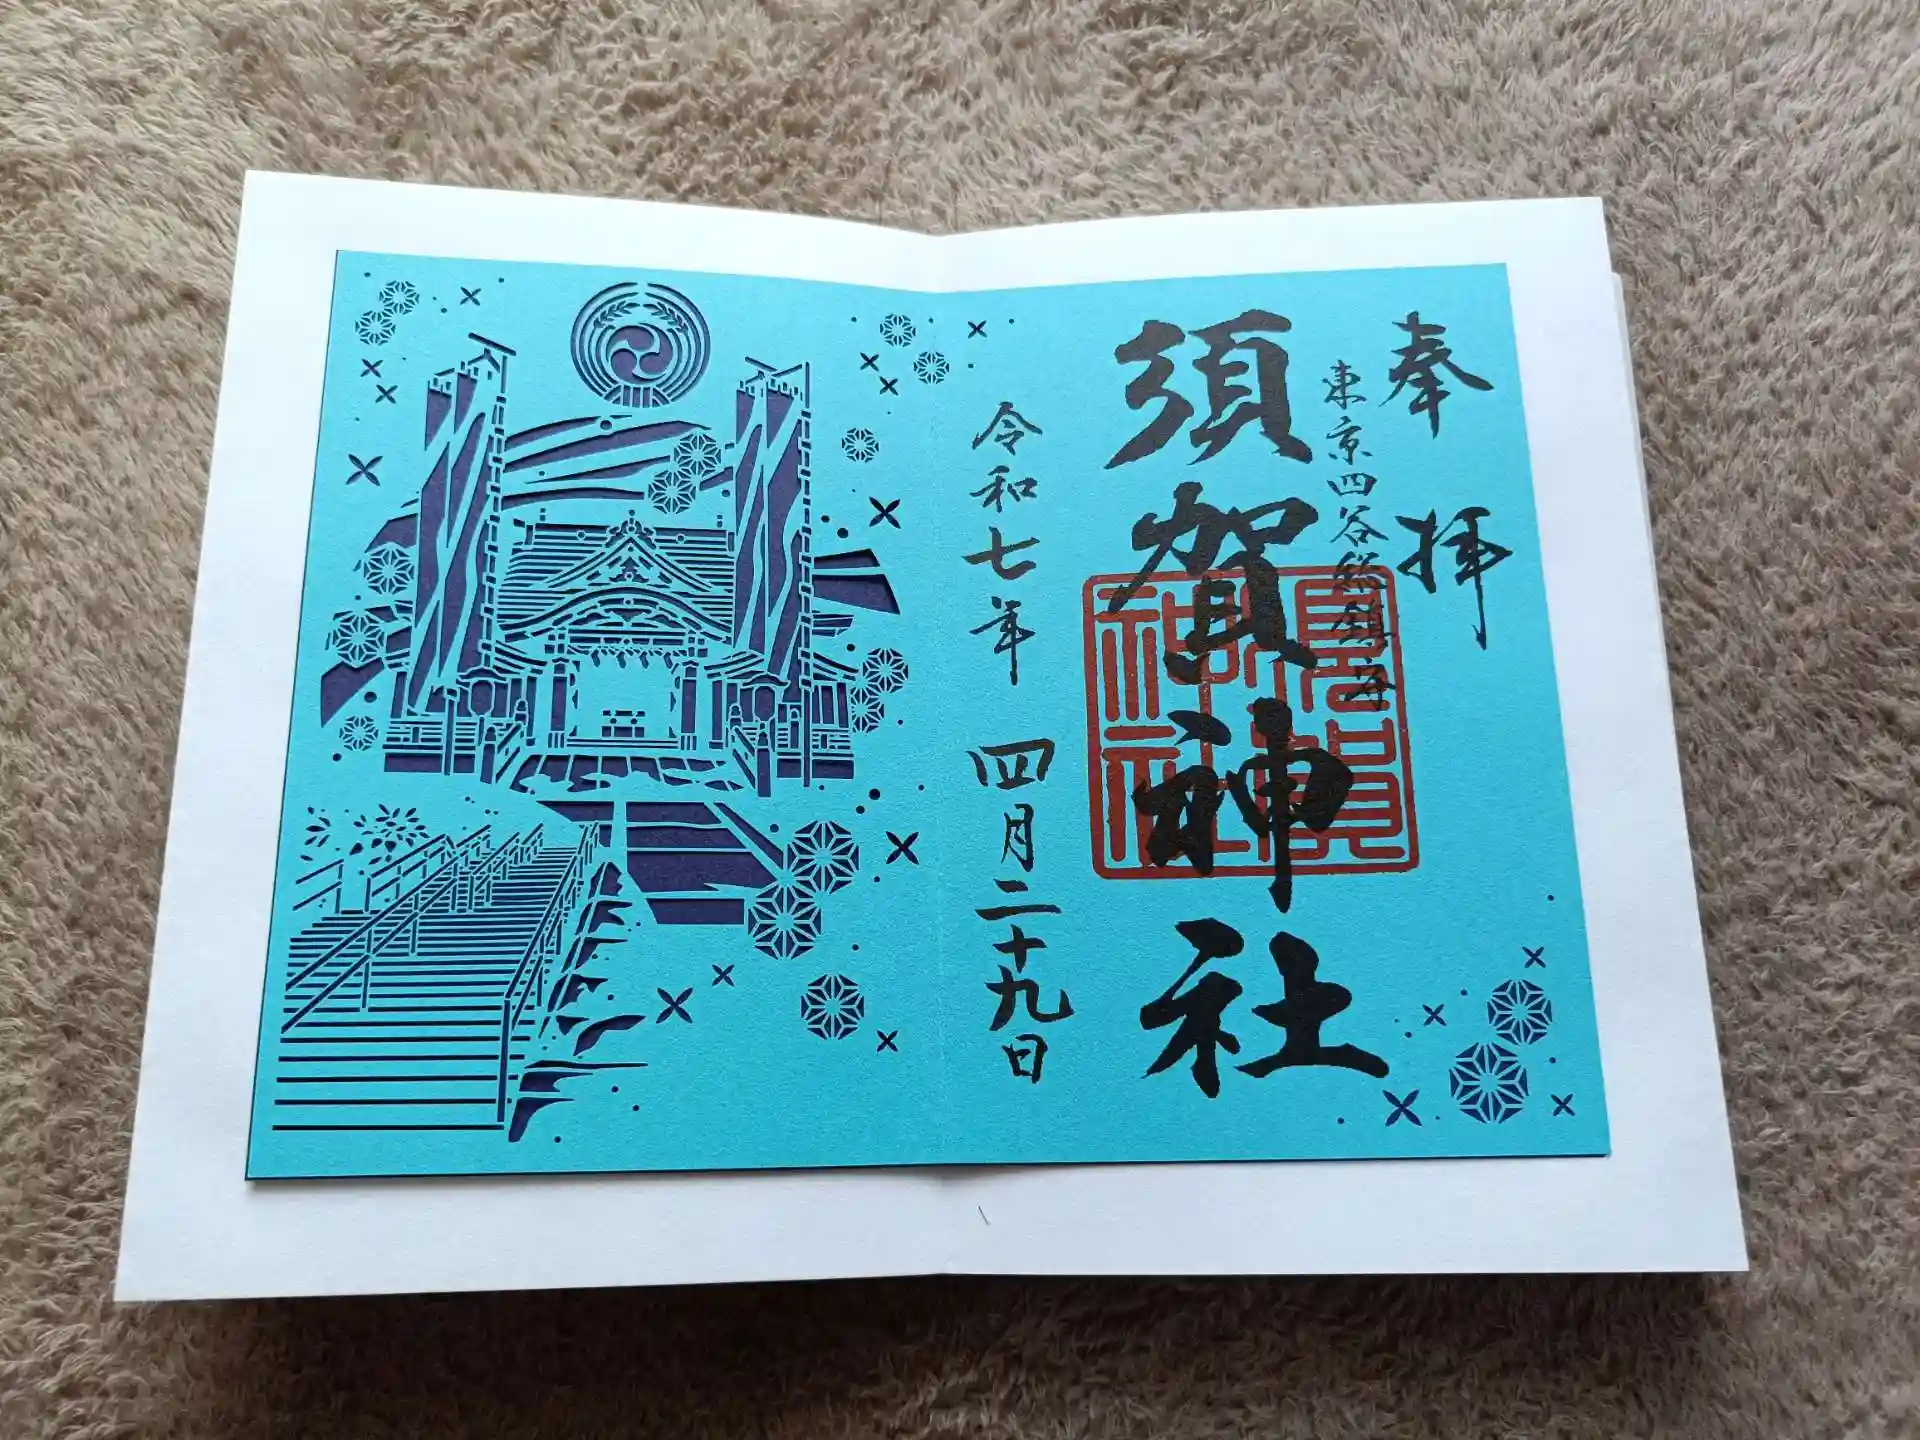 奉拝
東京四谷総鎮守
須賀神社
須賀神社
令和七年 四月二十九日